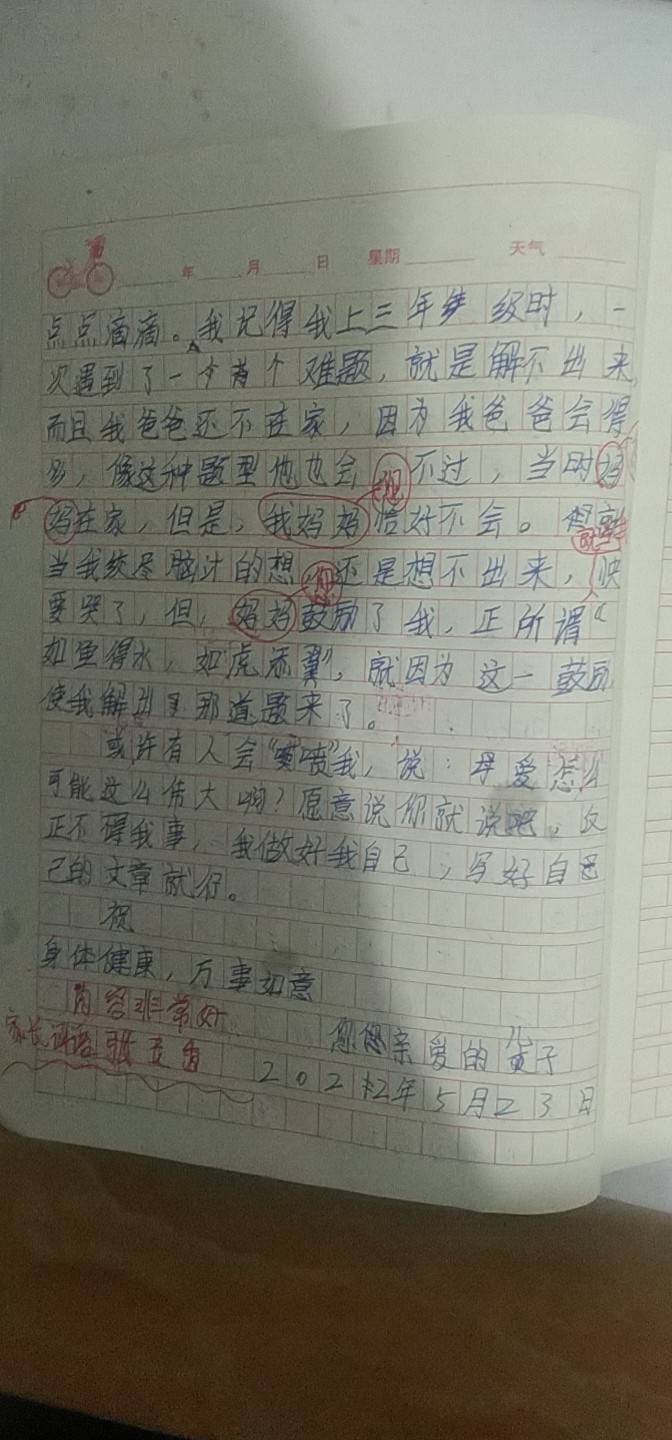 年 月 日 星期 天气
点点滴滴。我记得我上三年级时，一
次遇到了一个难题，就是解不出来，
而且我爸爸还不在家，因为我爸爸会得
多，像这种题型他也会，不过，当时妈
您
妈在家，但是，我妈妈恰好不会。
就在
当我绞尽脑汁的想，还是想不出来，快
您
要哭了，但，妈妈鼓励了我，正所谓“
如鱼得水，如虎添翼”，就因为这一鼓励
使我解出了那道题来了。
或许有人会“喷”我，说：母爱怎么
可能这么伟大啊？愿意说你就说吧，反
正不碍我事，我做好我自己，写好自
己的文章就行。
祝
身体健康，万事如意
内容非常好
您亲爱的儿子
家长评语
2022年5月23日